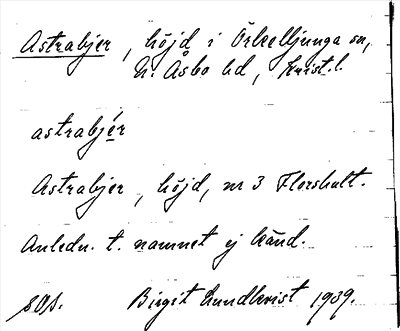 Astrabjer, höjd i Örkelljunga sn,
N. Åsbo hd, Krist.l.
astrabjér
Astrabjer, höjd, nr 3 Florshult.
Anledn. t. namnet ej känd.
Birgit Lundkvist 1939.